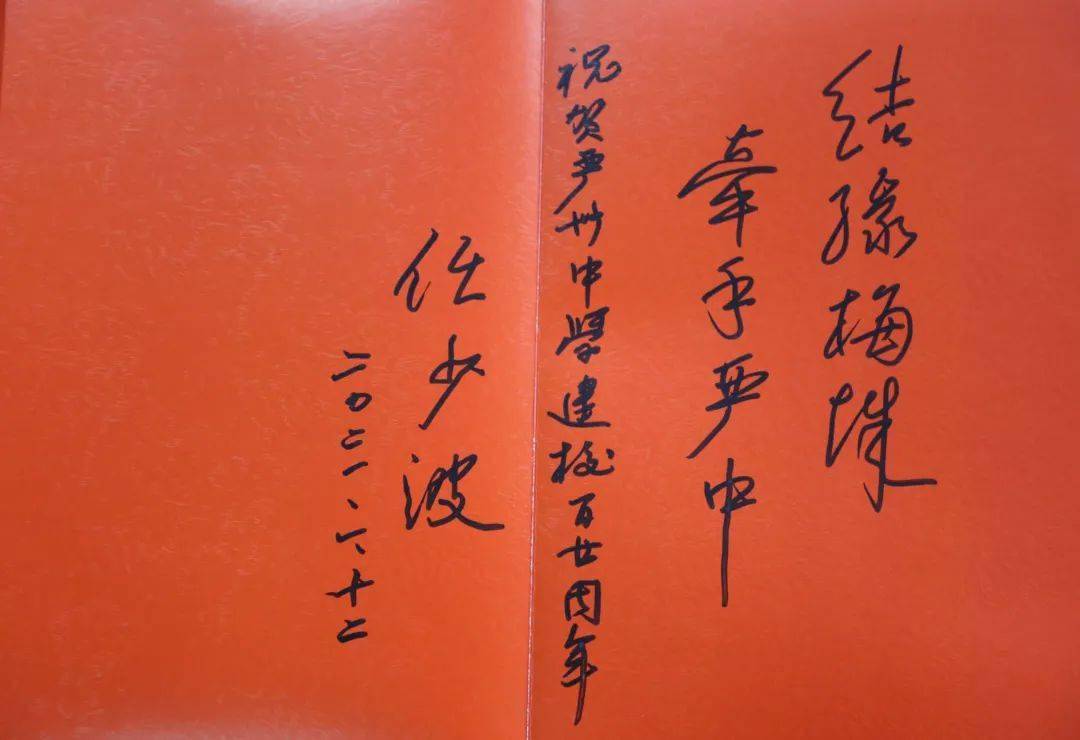 结缘梅城
牵手严中
祝贺严州中学建校百廿周年
任少波
二〇二一、六、十二